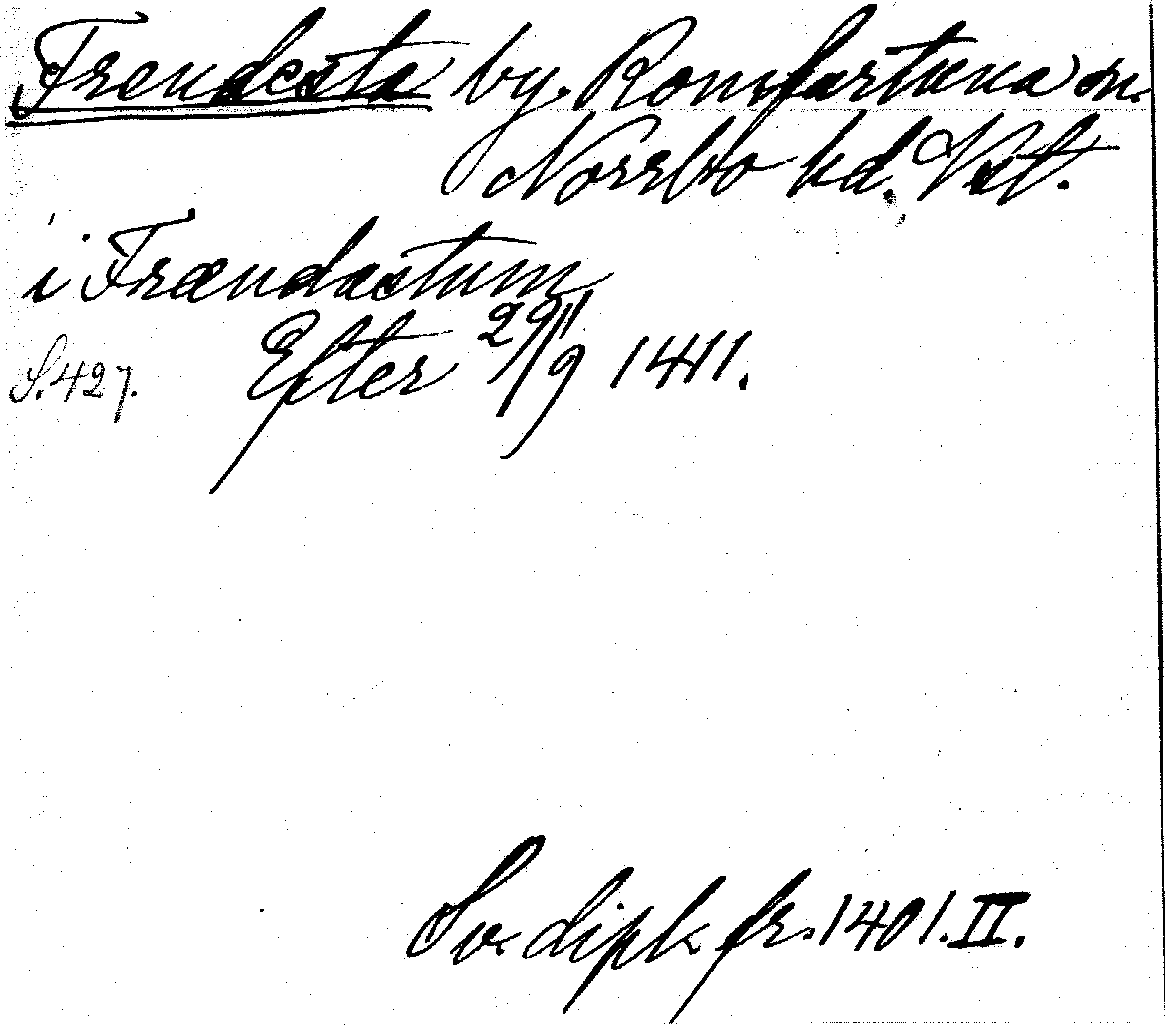 Frendesta by. Romfartuna sn.
Norrbo hd. Vstl.
i Frændastum
S. 427. Efter 29/9 1411.
Sv. dipl. fr. 1401. II.